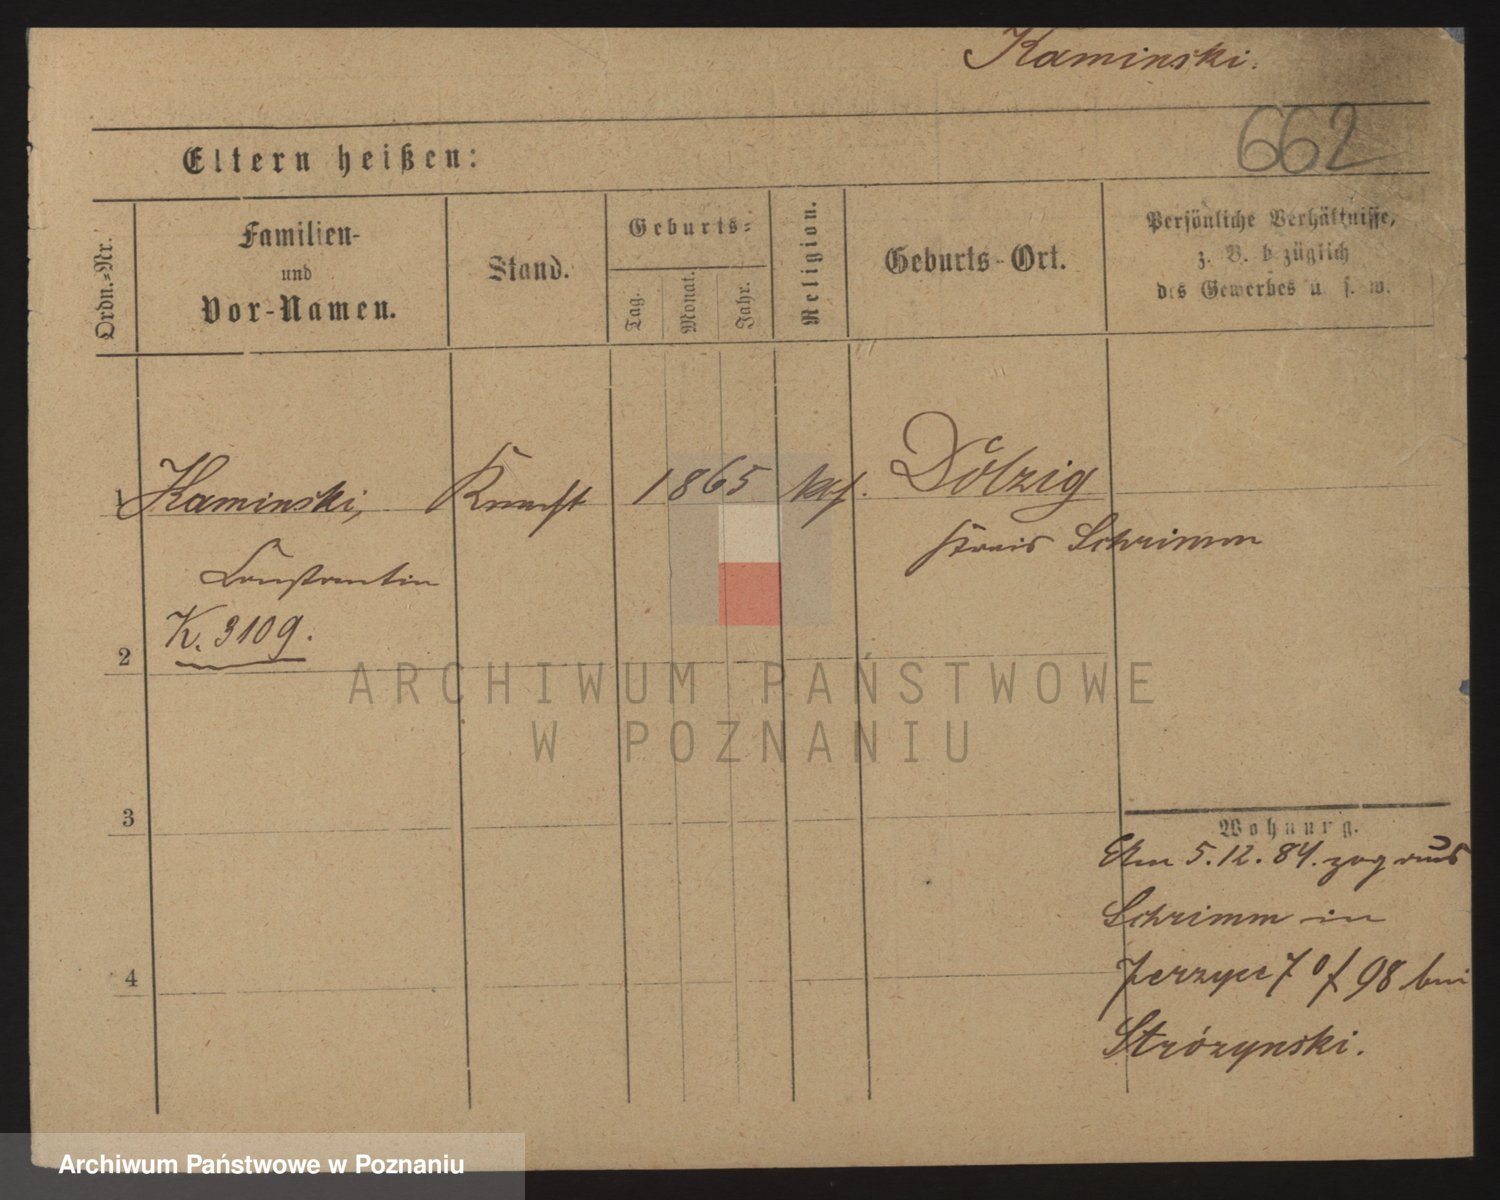 Kaminski.
662
Eltern heißen:
Ordn.-Nr.
Familien-
und
Vor-Namen.
Stand.
Geburts-
Tag.
Monat.
Jahr.
Religion.
Geburts-Ort.
Persönliche Verhältnisse,
z. B. bezüglich
des Gewerbes u. s. w.
1 Kaminski, Knecht 1865 kth. Dölzig
Kreis Schrimm
Constantin
K. 3109.
2
ARCHIWUM PAŃSTWOWE
W POZNANIU
3
Wohnung.
Am 5.12.84. zog aus
Schrimm in
4
Jerzyce 98 bei
Strózynski.
Archiwum Państwowe w Poznaniu